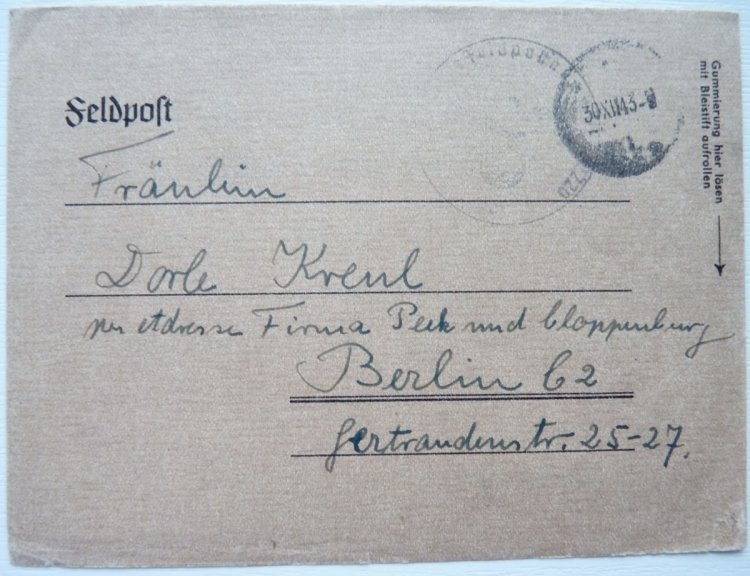 Feldpost
Fräulein
Dorle Kreul
per Adresse Firma Peek und Cloppenburg
Berlin C2
Gertraudenstr. 25-27.
Feldpost
220
30.XII.43.-
Gummierung hier lösen
mit Bleistift aufrollen